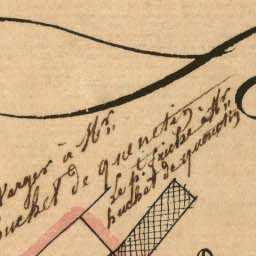 Verger à Mr.
huchet de quenetin
Le pt. friche à Mr.
huchet de quenetin